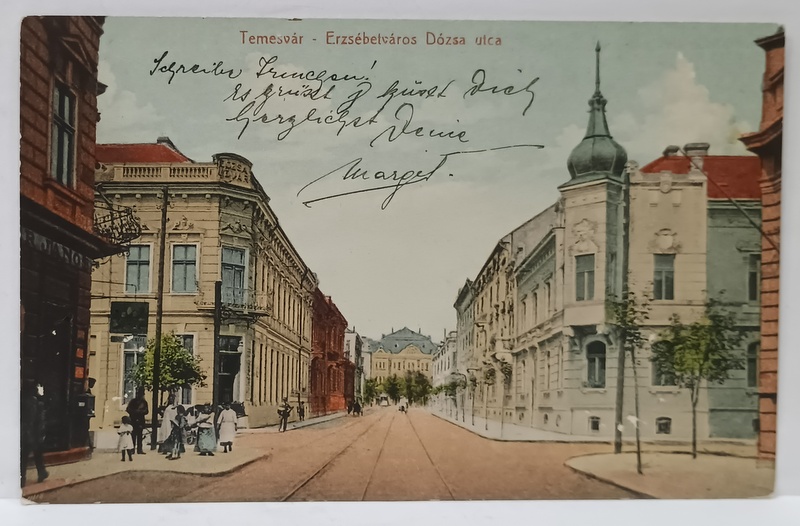 Temesvár - Erzsébetváros Dózsa utca
Schreibe Irmchen!
Es grüsst & küsst Dich
Herzlichst Deine
Margit.